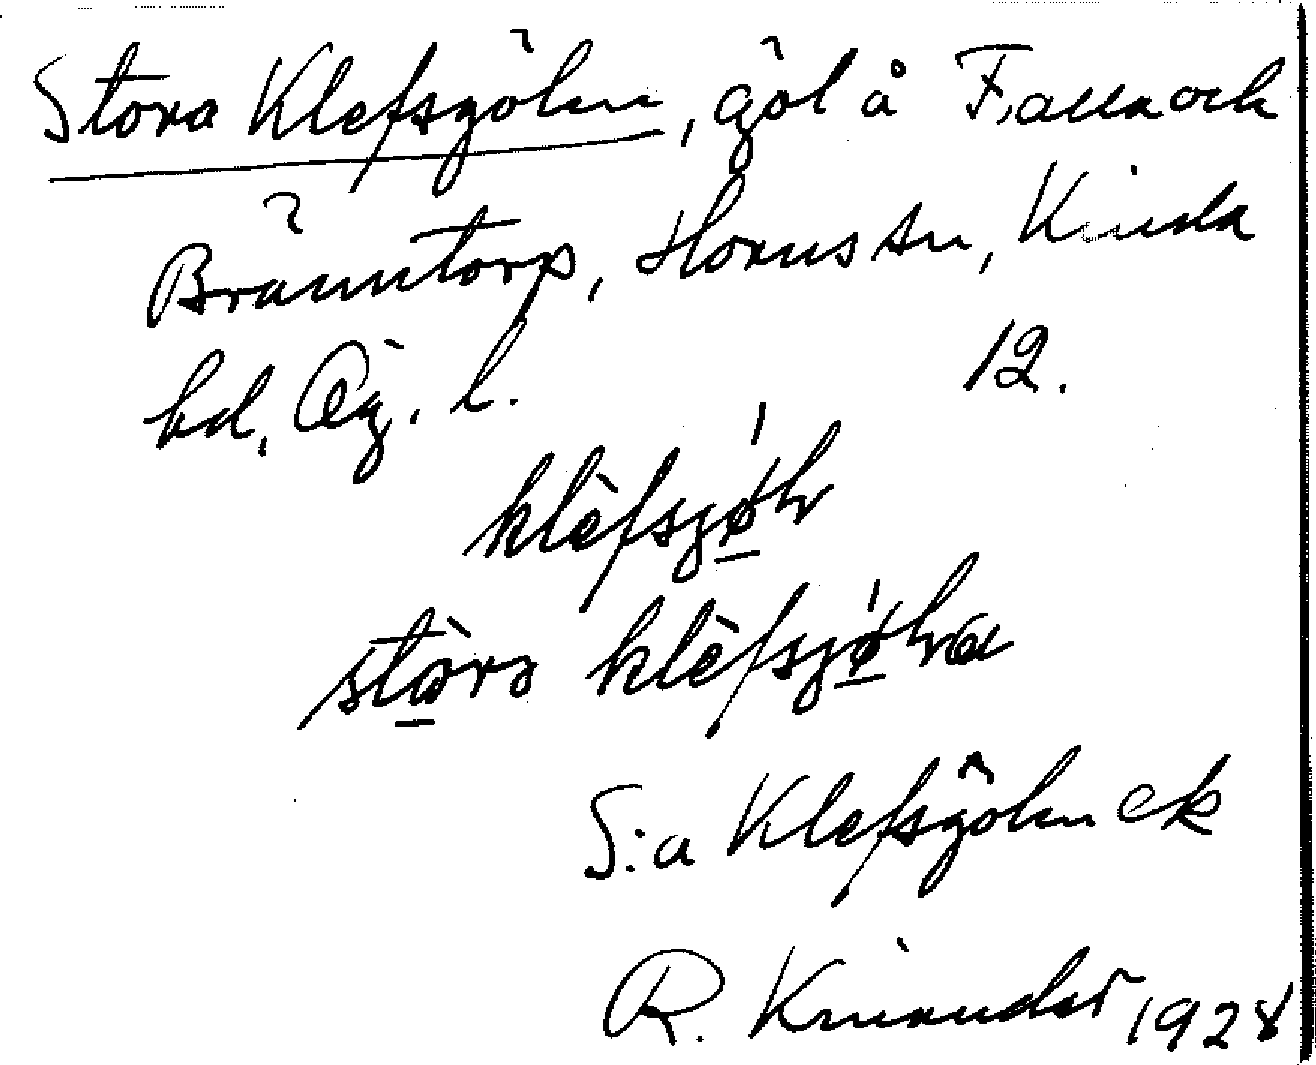 Stora Klefsgölen, göl å Falla och
Bränntorp, Horns sn, Kinda
hd, Ög. l. 12.
klèfsjǿln
stòra klèfsjǿlna
S:a Klefsgölen ek
R. Kinander 1928